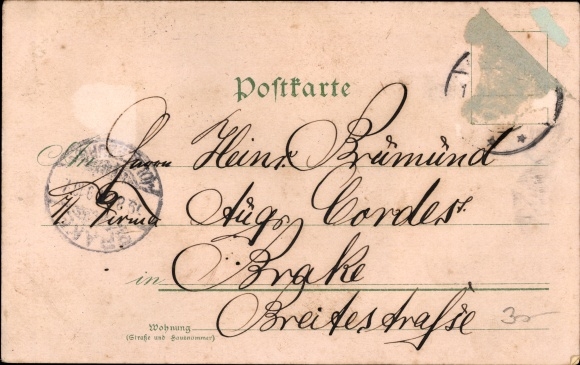 Postkarte
An Herrn Heinr Brümünd
Firma Aug. Cordes.
in Brake
Breitestraße
Wohnung
(Straße und Hausnummer)